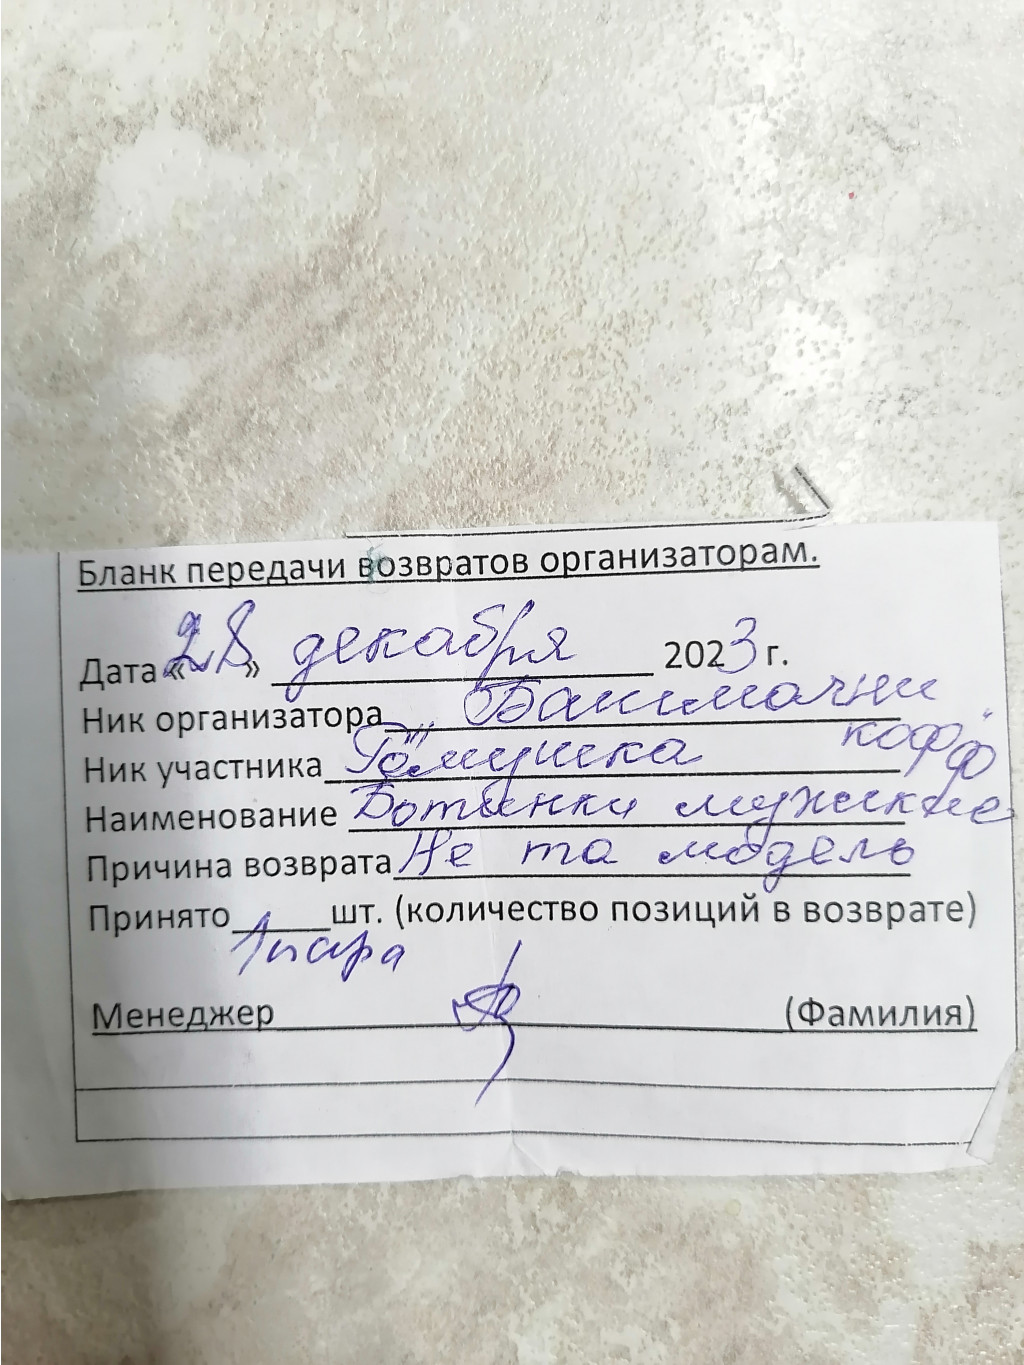 Бланк передачи возвратов организаторам.
Дата «28» декабря 2023 г.
Ник организатора Башмачки
кофф
Ник участника Рёмушка
Наименование Ботинки мужские
Причина возврата Не та модель
Принято шт. (количество позиций в возврате)
1 пара
Менеджер (Фамилия)